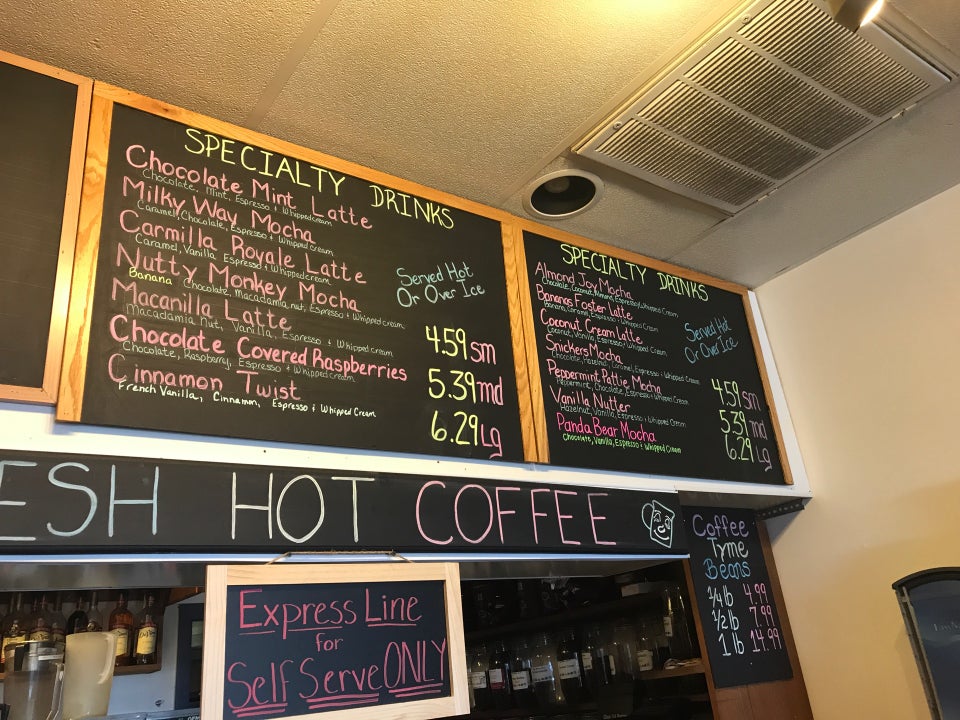 SPECIALTY DRINKS
Chocolate Mint Latte
Chocolate, Mint, Espresso + Whipped cream
Milky Way Mocha
Caramel, Chocolate, Espresso + Whipped cream
Carmilla Royale Latte
Caramel, Vanilla, Espresso + Whipped cream
Nutty Monkey Mocha
Banana Chocolate, Macadamia nut, Espresso + Whipped cream
Macanilla Latte
Macadamia Nut, Vanilla, Espresso + Whipped cream
Chocolate Covered Raspberries
Chocolate, Raspberry, Espresso + Whipped cream
Cinnamon Twist
French Vanilla, Cinnamon, Espresso + Whipped Cream
Served Hot
Or Over Ice
4.59 sm
5.39 md
6.29 Lg
SPECIALTY DRINKS
Almond Joy Mocha
Chocolate, Coconut, Almond, Espresso + Whipped Cream
Bananas Foster Latte
Banana, Caramel, Espresso + Whipped Cream
Coconut Cream Latte
Coconut, Vanilla, Espresso + Whipped Cream
Snickers Mocha
Chocolate, Hazelnut, Caramel, Espresso + Whipped Cream
Peppermint Pattie Mocha
Peppermint, Chocolate, Espresso + Whipped Cream
Vanilla Nutter
Hazelnut, Vanilla, Espresso + Whipped Cream
Panda Bear Mocha
Chocolate, Vanilla, Espresso + Whipped Cream
Served Hot
Or Over Ice
4.59 sm
5.39 md
6.29 Lg
ESH HOT COFFEE
Express Line
for
Self Serve ONLY
Coffee
Tyme
Beans
1/4 lb 4.99
1/2 lb 7.99
1 lb 14.99